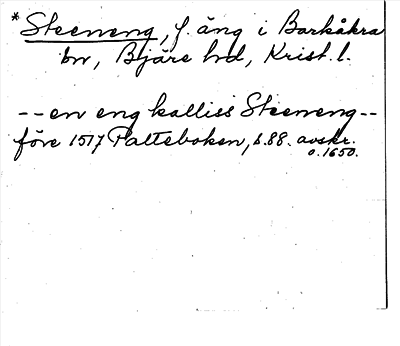 * Steeneng, f. äng i Barkåkra
sn, Bjäre hd, Krist. l.
-- en eng kalliss Steeneng --
före 1517 Palteboken, s. 88. avskr.
o. 1650.